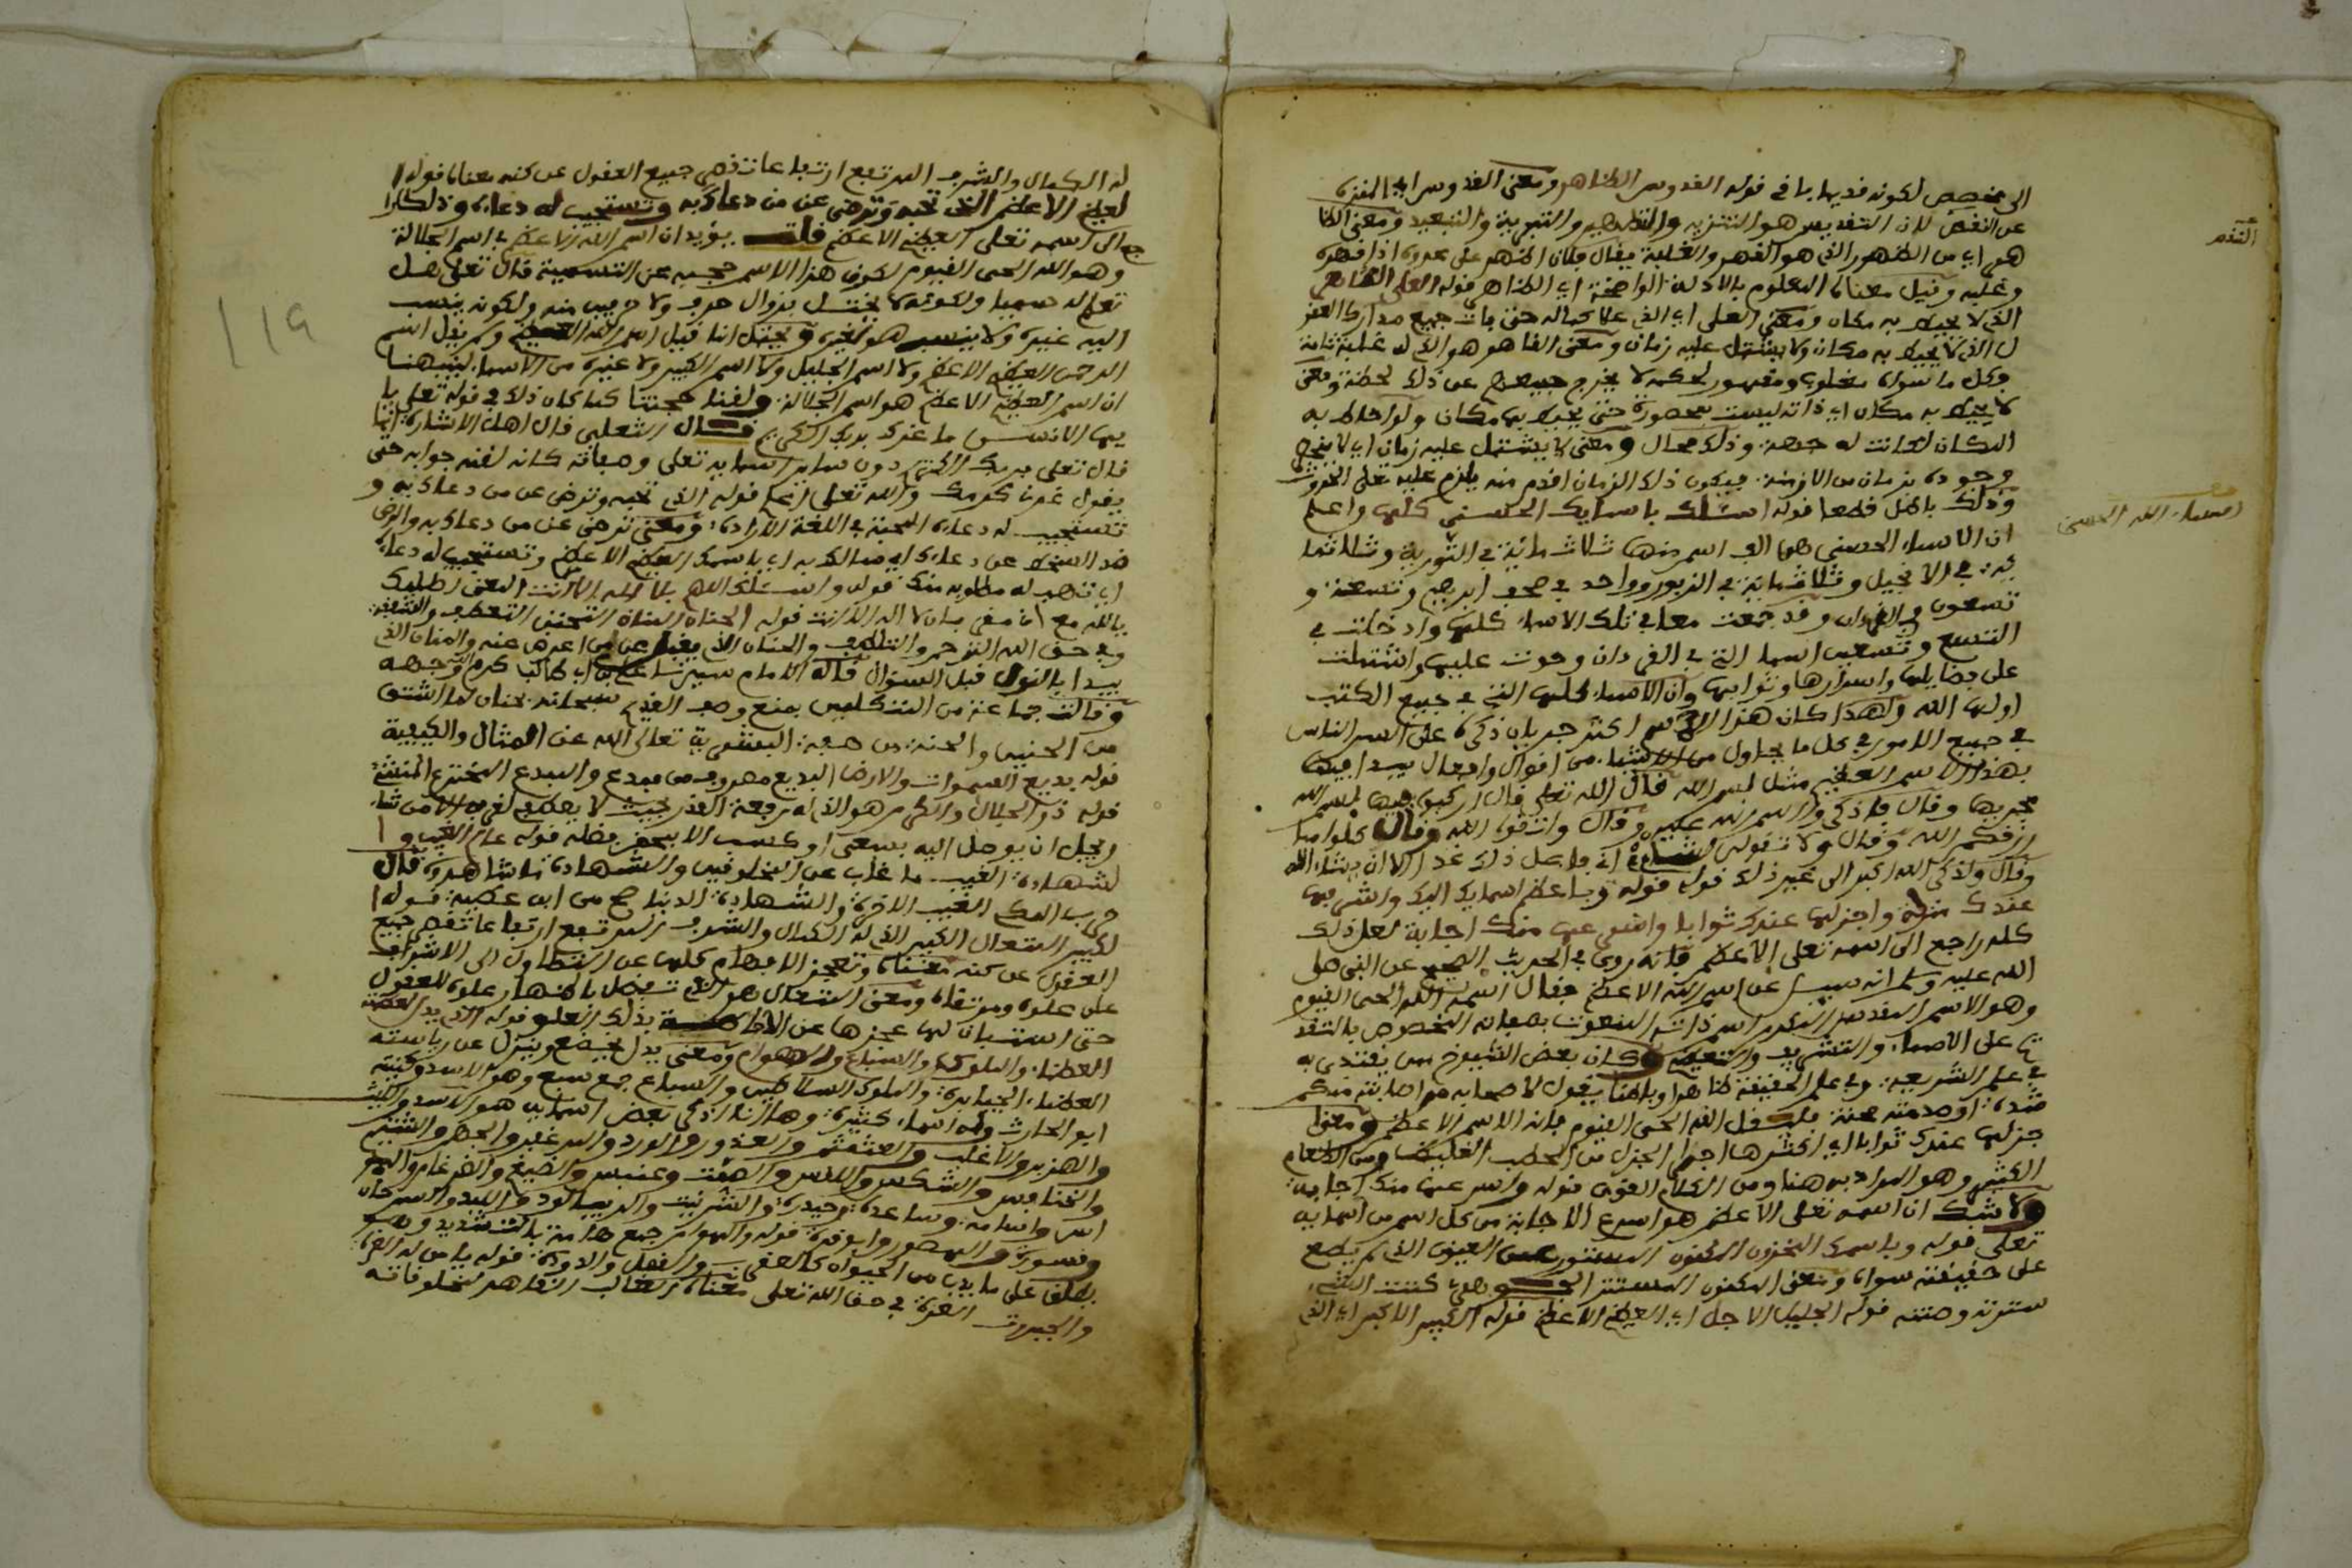 الى مخصص لكونه قديما باقى قوله القدوس الطاهر ومعنى القدوس اي المنزه
عن النقص لان التقديس هو التنزيه والتطهير والتبرية والتبعيد ومعنى الظا
هر اي من الظهور الذي هو القهر والغلبة يقال فلان اظهر على عدوه اذا قهره
وغلبه وقيل معناه المعلوم بالادلة الواضحة اي الظاهر قوله العلى القاهر
الذي لا يحيط به مكان ومعنى العلى اي الذي علا كماله حتى فات جميع مدارك العقو
ل الذي لا يحيط به مكان ولا يشتمل عليه زمان ومعنى القاهر هو الذي له غلبة تامة
وكل ما سواه مغلوب ومقهور لحكمه لا يخرج جميعهم عن ذلك لحظة ومعنى
لا يحيط به مكان اي ذاته ليست بمحصورة حتى يحيط بها مكان ولو احاط به
المكان لكانت له جهة وذلك محال ومعنى لا يشتمل عليه زمان اي لا ينحصر
وجوده بزمان من الازمنة فيكون ذلك الزمان اقدم منه يلزم عليه تعلى الحدوث
وذلك باطل قطعا قوله اسئلك باسمايك الحسنى كلها واعلم
ان الاسماء الحسنى هى الف اسم منها ثلاث مائة في التورية وثلاثما
ئة في الانجيل وثلاثمائة في الزبور وواحد في صحف ابرهيم وتسعة و
تسعون في الفرءان وقد جمعت معانى تلك الاسماء كلها وادخلت في
التسع وتسعين اسما التى في الفرءان وحوت عليها واشتملت
على فضايلها واسرارها وثوابها وان الاسماء كلها التى في جميع الكتب
اولها الله ولهذا كان هذا الاسم اكثر جريان ذكره على السن الناس
في جميع الامور في كل ما يحاول من الاشياء من اقوال وافعال يبدا فيها
بهذا الاسم العظيم مثل بسم الله قال الله تعلى قال اركبوا فيها بسم الله
مجريها وقال فاذكروا اسم الله عليه وقال واتقوا الله وقال كلوا مما
رزقكم الله وقال ولا تقولن لشيء اني فاعل ذلك غدا الا ان يشاء الله
وقال ولذكر الله اكبر الى غير ذلك قوله وباعظم اسمايك اليك واشرفها
عندك منزلة واجزلها عندك ثوابا واسرعها منك اجابة لعل ذلك
كله راجع الى اسمه تعلى الاعظم فانه روى في الحديث الصحيح عن النبي صلى
الله عليه وسلم انه سيل عن اسم الله الاعظم فقال اسمه الله الحى القيوم
وهو الاسم المقدس الكريم اسم ذاته المنعوت بصفاته المخصوص بالتقد
يم على الاسماء والتشريف والتعظيم وكان بعض الشيوخ ممن يقتدى به
في علم الشريعة وفي علم الحقيقة ظاهرا وباطنا يقول لاصحابه من اصابته منكم
شدة او صدمته محنة فليقل الله الحى القيوم فانه الاسم الاعظم ومعنى ا
جزلها عندك ثوابا اي اكثرها اجرا الجزل من الحطب الغليظ ومن الطعام
الكثير وهو المراد به هنا ومن الكلام القوى قوله واسرعها منك اجابة
ولا شك ان اسمه تعلى الاعظم هو اسرع الاجابة من كل اسم من اسمايه
تعلى قوله وباسمك المخزون المكنون المستور عن العيون الذي لم يطلع
على حقيقته سواه ومعنى المكنون المستتر يقال كننت الشىء
سترته وصنته قوله الجليل الاجل اي العظيم الاعظم قوله الكبير الاكبر اي الذي
التقدم
اسماء الله الحسنى
له الكمال والشرف المرتفع ارتفاعا تقصر جميع العقول عن كنه معناه قوله ا
لعظيم الاعظم الذي تحبه وترضى عن من دعاك به وتستجيب له دعاءه وذلك را
جع الى اسمه تعلى العظيم الاعظم قلت يؤيد ان اسم الله الاعظم في اسم الجلالة
وهو الله الحى القيوم لكون هذا الاسم حجبه عن التسمية قال تعلى هل
تعلم له سميا ولكونه لا يختل بزوال حرف ولا حرفين منه ولكونه ينسب
اليه غيره ولا ينسب هو لغيره ويحتمل انا قيل اسم الله العظيم ولم يقل اسم
الرحمن العظيم الاعظم ولا اسم الجليل ولا اسم الكبير ولا غيره من الاسماء لينبهنا
ان اسم العظيم الاعظم هو اسم الجلالة ولقنا حجتنا كما كان ذلك في قوله تعلى يا
يها الانسن ما غرك بربك الكريم قال الثعلبى قال اهل الاشارة انما
قال تعلى بربك الكريم دون ساير اسمايه تعلى وصفاته كانه لقنه جوابه حتى
يقول غرنى كرمك والله تعلى اعلم قوله الذي تحبه وترضى عن من دعاك به و
تستجيب له دعاءه المحبة في اللغة الارادة ومعنى ترضى عن من دعاك به والرضى
ضد السخط عن دعاك اي سالك به اي باسمك العظيم الاعظم وتستجيب له دعاءه
اي تذهب له مطلوبه منك قوله واسئلك اللهم بلا اله الا انت المعنى اطلبك
يالله مع ان مغى بلا اله الا انت قوله الحنان المنان التحنن التعطف والشفقة
وفي حق الله الترحم والتلطف والحنان الذي يقبل على من اعرض عنه والمنان الذي
يبدا بالنوال قبل السؤال قاله الامام سيدنا على بن ابي طالب كرم الله وجهه
وقالت جماعة من المتكلمين بمنع وصف القديم سبحانه بحنان لما اشتق
من الحنين والحنة من صفة البشرية تعالى الله عن المثال والكيفية
قوله بديع السموات والارض البديع مصروف من مبدع والمبدع المخترع المنشئ
قوله ذو الجلال والاكرام هو الذي له رفعة القدر بحيث لا يصلح لغيره الامن شاء
ويجل ان يوصل اليه بسعى او كسب الا بمحض فضله قوله عالم الغيب و ا
لشهادة الغيب ما غاب عن المخلوقين والشهادة ما شاهدوه قال
حرب المكى الغيب الاخرة والشهادة الدنيا صح من ابن عطية قوله ا
لكبير المتعال الكبير الذي له الكمال والشرف المرتفع ارتفاعا تقصر جميع
العقول عن كنه معناه وتعجز الافهام كلها عن التطاول الى الاشراف
على علوه ومرتقاه ومعنى المتعال هو الذي تفضل باظهار علوه للعقول
حتى استبان لها عجزها عن الاحاطة بذلك العلو قوله الذي يدل لعظمته
العظماء والملوك والسباع والهوام ومعنى يدل يخضع وينزل عن رياسته
العظماء الجبابرة والملوك السلاطين والسباع جمع سبع وهو الاسد وكنيته
ابو الحارث وله اسماء كثيرة وها انا اذكر بعض اسمايه هو الاسد والليث
والهزبر والاغلب والعثمثم والعذور والورد والضرغم والجهضم والشتيم
والخنابس والشكس والدلهمس والهصور وعنبس والضيغم والضرغام والهمام
اسد واسامة وساعدة وحيدرة والشرنبث والريبال ودو اللبد والسرحان
وقسورة والهصور وابو فروة قوله والهوام جمع هامة بالتشديد وهو
يطلق على ما يدب من الحيوان كالعقرب والقمل والدود قوله يا من له العزة
والجبروت العزة في حق الله تعلى معناه الغالب القاهر لمخلوقاته
119